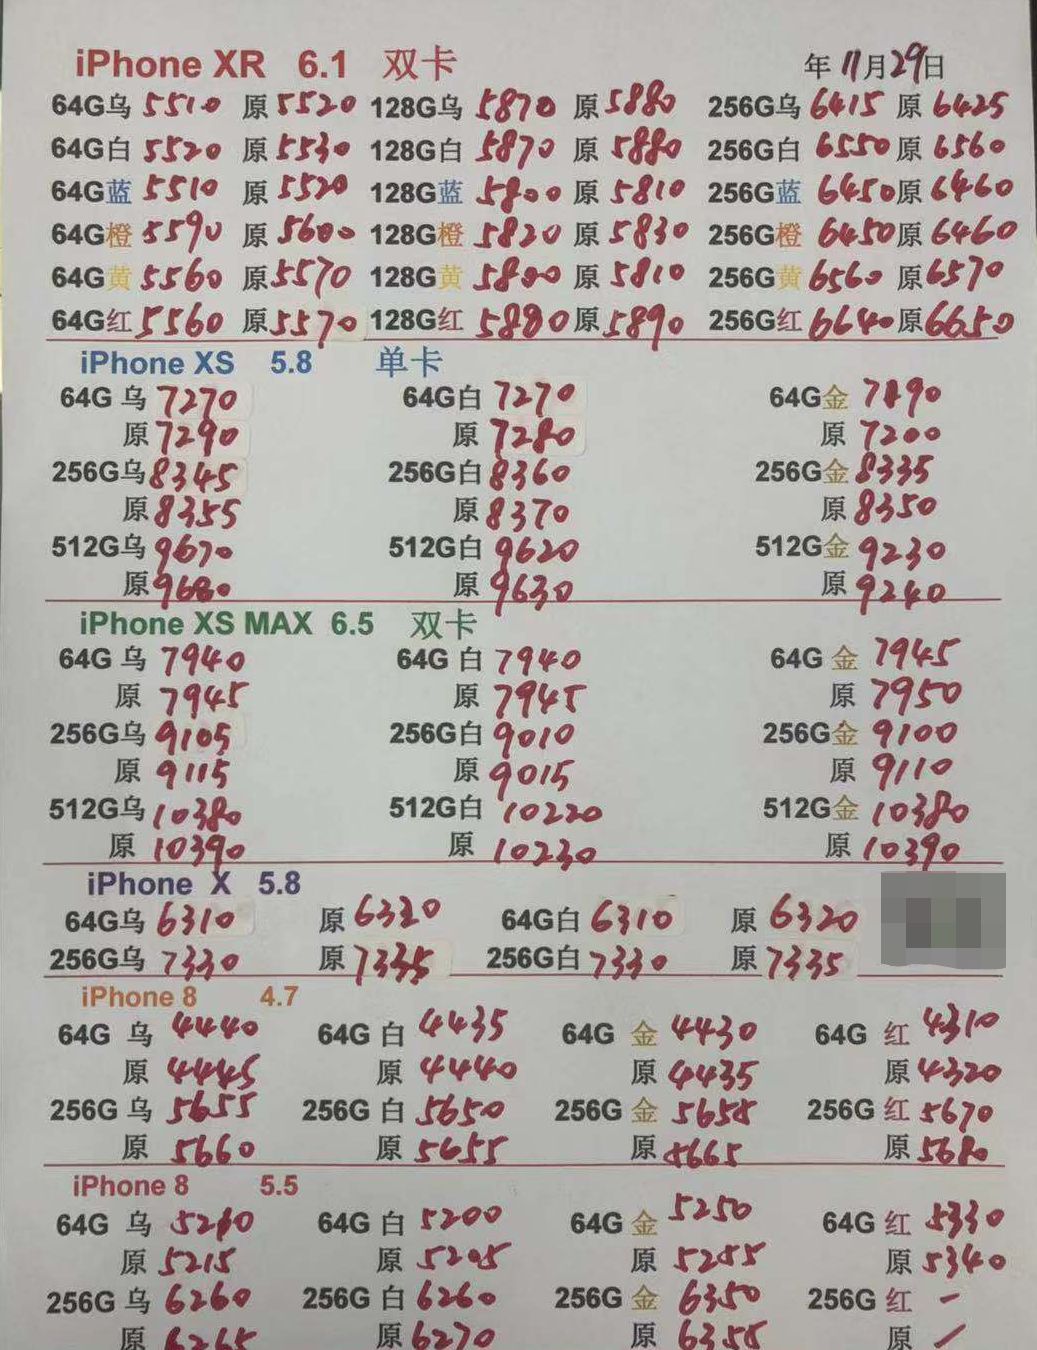 iPhone XR 6.1 双卡 年 11月29日
64G乌 5510 原 5520 128G乌 5870 原 5880 256G乌 6415 原 6425
64G白 5520 原 5530 128G白 5870 原 5880 256G白 6550 原 6560
64G蓝 5510 原 5520 128G蓝 5800 原 5810 256G蓝 6450 原 6460
64G橙 5590 原 5600 128G橙 5820 原 5830 256G橙 6450 原 6460
64G黄 5560 原 5570 128G黄 5800 原 5810 256G黄 6560 原 6570
64G红 5560 原 5570 128G红 5880 原 5890 256G红 6640 原 6650
iPhone XS 5.8 单卡
64G 乌 7270 64G白 7270 64G金 7190
原 7290 原 7280 原 7200
256G乌 8345 256G白 8360 256G金 8335
原 8355 原 8370 原 8350
512G乌 9670 512G白 9620 512G金 9230
原 9680 原 9630 原 9240
iPhone XS MAX 6.5 双卡
64G 乌 7940 64G 白 7940 64G 金 7945
原 7945 原 7945 原 7950
256G乌 9105 256G白 9010 256G金 9100
原 9115 原 9015 原 9110
512G乌 10380 512G白 10220 512G金 10380
原 10390 原 10230 原 10390
iPhone X 5.8
64G乌 6310 原 6320 64G白 6310 原 6320
256G乌 7330 原 7335 256G白 7330 原 7335
iPhone 8 4.7
64G 乌 4440 64G 白 4435 64G 金 4430 64G 红 4310
原 4445 原 4440 原 4435 原 4320
256G 乌 5655 256G 白 5650 256G 金 5655 256G 红 5670
原 5660 原 5655 原 5665 原 5680
iPhone 8 5.5
64G 乌 5210 64G 白 5200 64G 金 5250 64G 红 5330
原 5215 原 5205 原 5255 原 5340
256G 乌 6260 256G 白 6260 256G 金 6350 256G 红 -
原 6265 原 6270 原 6355 原 /